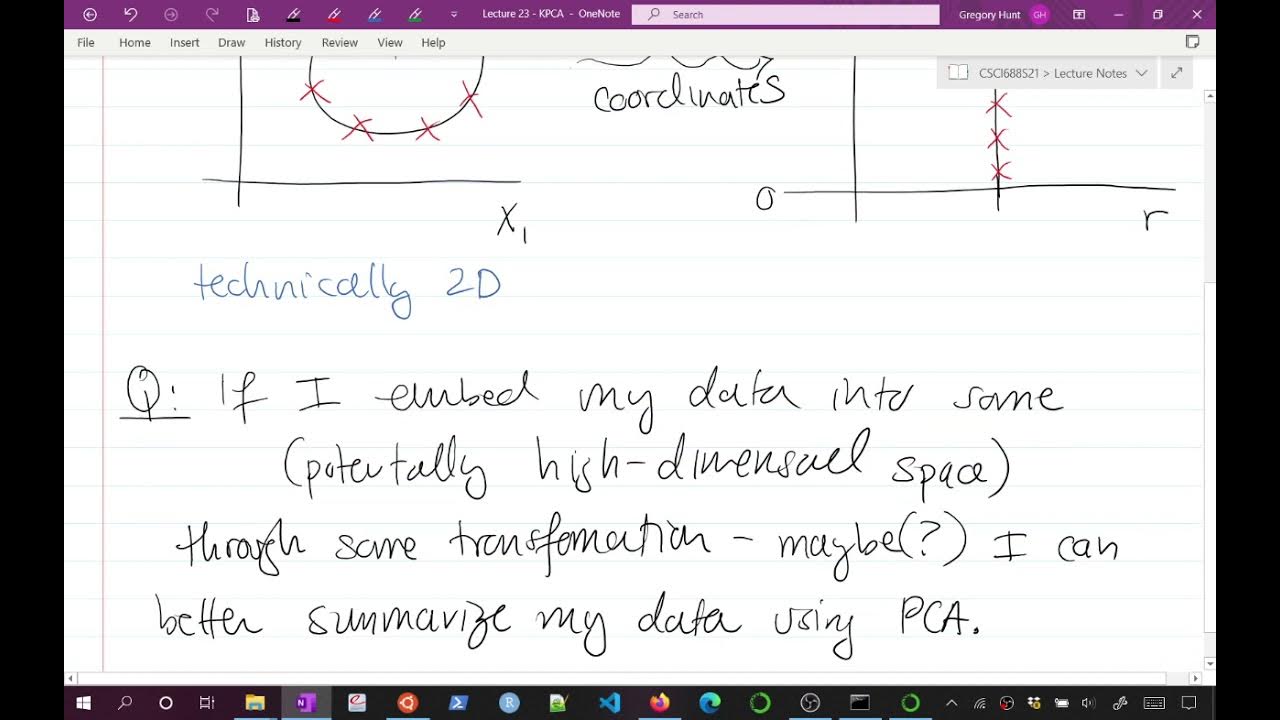 Lecture 23 - KPCA - OneNote
Search
Gregory Hunt
GH
File Home Insert Draw History Review View Help
CSCI688S21 > Lecture Notes
coordinates
0
X1
r
technically 2D
Q: If I embed my data into some
(potentally high-dimensael space)
through some transfomation - maybe(?) I can
better summarize my data using PCA.